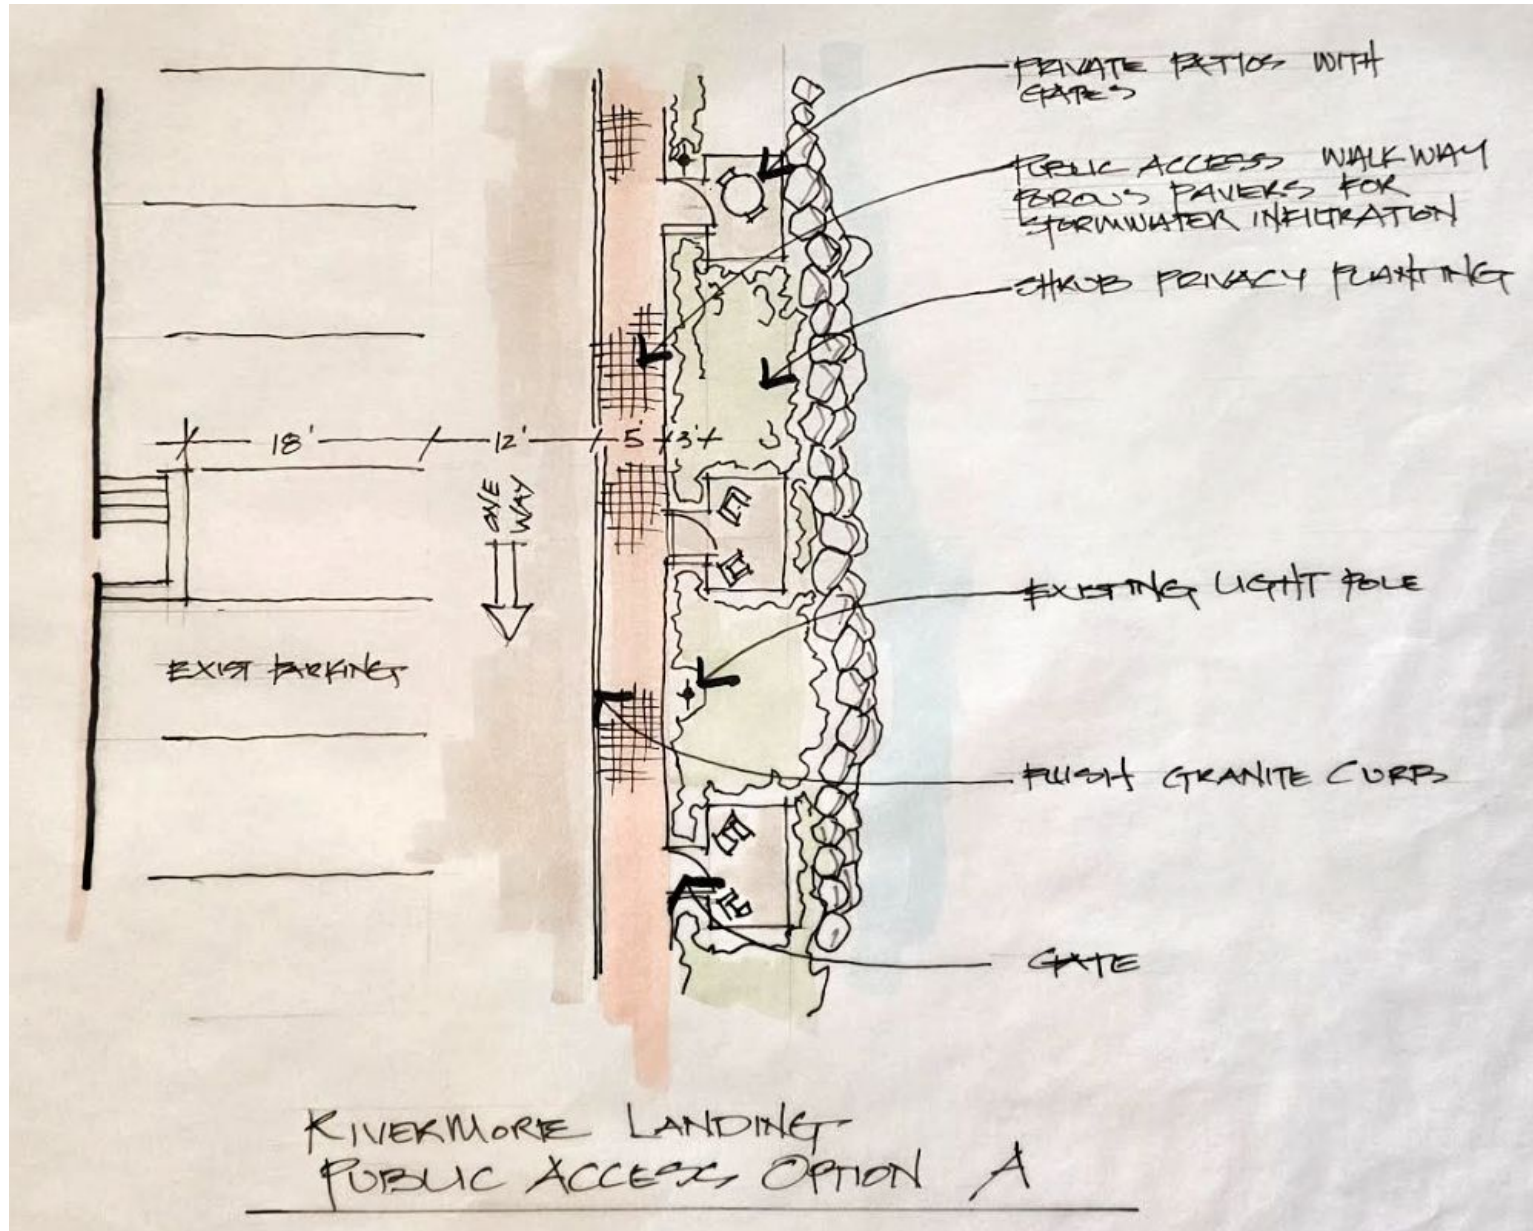 PRIVATE PATIOS WITH
GATES
PUBLIC ACCESS WALKWAY
POROUS PAVERS FOR
STORMWATER INFILTRATION
SHRUB PRIVACY PLANTING
18'
12'
5'
3'
ONE
WAY
EXISTING LIGHT POLE
EXIST PARKING
FLUSH GRANITE CURB
GATE
RIVERMORE LANDING
PUBLIC ACCESS OPTION A